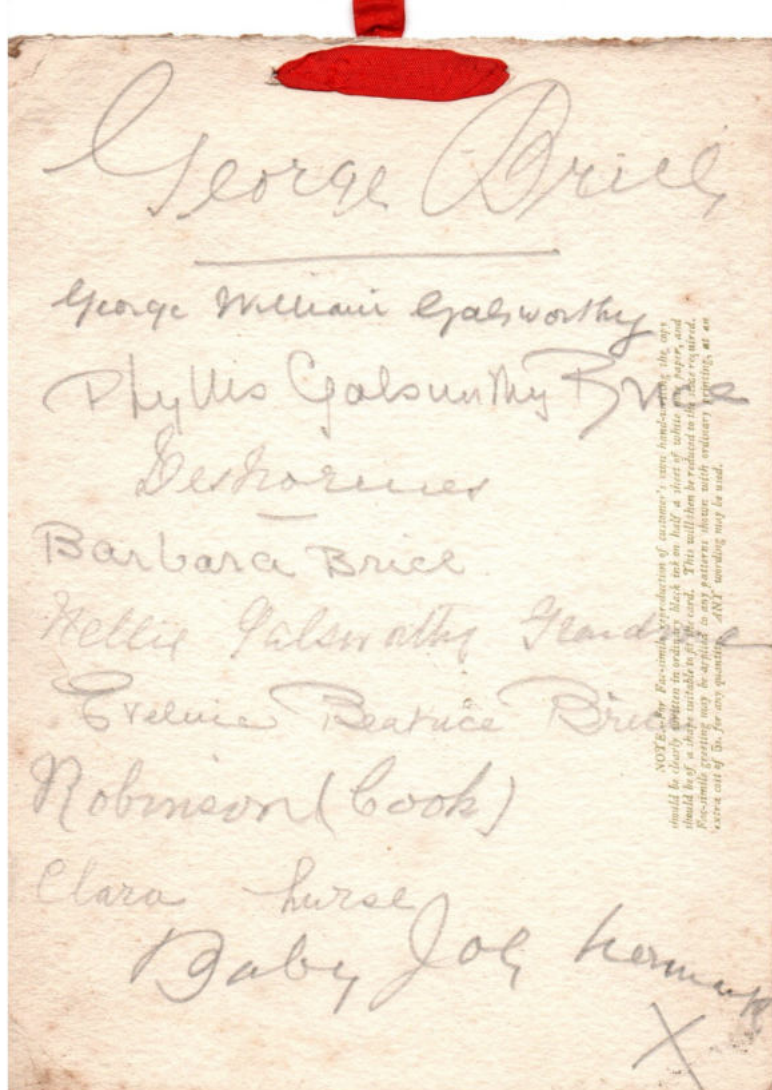 George Brice
George William Galsworthy
Phyllis Galsworthy Brice
Barbara Brice
Nellie Galsworthy Grandma
Beatrice Brice
Robinson (Cook)
Clara nurse
Baby
X
NOTE.—For Fac-simile reproduction of customer's own hand-writing, the copy
should be clearly written in ordinary black ink on half a sheet of white paper, and
should be of a shape suitable to fit the card. This will then be reduced to the size required.
Fac-simile greeting may be applied to any patterns shown with ordinary printing, at an
extra cost of for any quantity. ANY wording may be used.